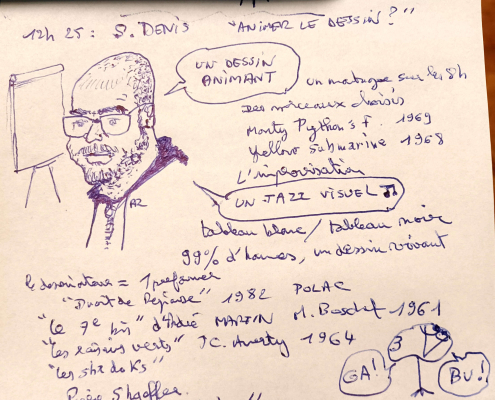 12h 25 : S. DENIS "ANIMER LE DESSIN ?"
UN DESSIN
ANIMANT
un matraque sur les 8h
des morceaux choisis
Monty Python's F. 1969
Yellow Submarine 1968
L'improvisation
UN JAZZ VISUEL
AZ
tableau blanc / tableau noir
99% d'hommes, un dessin vivant
le dessinateur = 1 performer
"Droit de Réponse" 1982 POLAC
"Le 7e bis" d'André MARTIN M. Boschet 1961
"Les raisins verts" JC. Averty 1964
"Les shadoks"
3
GA!
BU!